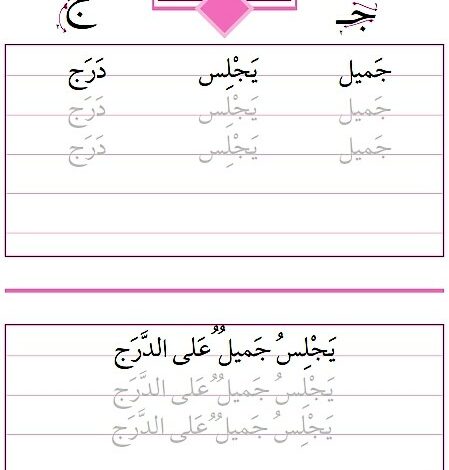 ج جـ
جَميل يَجْلِس دَرَج
جَميل يَجْلِس دَرَج
جَميل يَجْلِس دَرَج
يَجْلِسُ جَميلٌ عَلى الدَّرَج
يَجْلِسُ جَميلٌ عَلى الدَّرَج
يَجْلِسُ جَميلٌ عَلى الدَّرَج